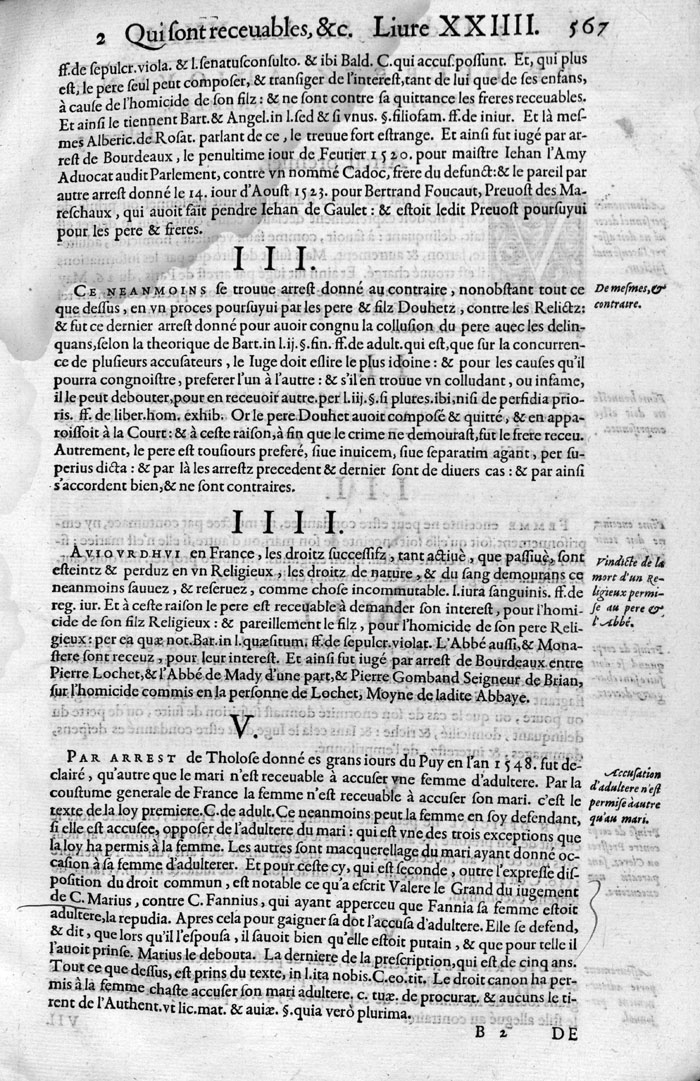 2 Qui sont receuables, &c. Liure XXIIII. 567
ff. de sepulcr. viola. & l. senatusconsulto. & ibi Bald. C. qui accus. possunt. Et, qui plus
est, le pere seul peut composer, & transiger de l'interest, tant de lui que de ses enfans,
à cause de l'homicide de son filz: & ne sont contre sa quittance les freres receuables.
Et ainsi le tiennent Bart. & Angel. in l. sed & si vnus. §. filiosam. ff. de iniur. Et là mes-
mes Alberic. de Rosat. parlant de ce, le treuue fort estrange. Et ainsi fut iugé par ar-
rest de Bourdeaux, le penultime iour de Feurier 1520. pour maistre Iehan l'Amy
Aduocat audit Parlement, contre vn nommé Cadoc, frere du defunct: & le pareil par
autre arrest donné le 14. iour d'Aoust 1523. pour Bertrand Foucaut, Preuost des Ma-
reschaux, qui auoit fait pendre Iehan de Gaulet: & estoit ledit Preuost poursuyui
pour les pere & freres.
III.
CE NEANMOINS se trouue arrest donné au contraire, nonobstant tout ce
que dessus, en vn proces poursuyui par les pere & filz Douhetz, contre les Relictz:
& fut ce dernier arrest donné pour auoir congnu la collusion du pere auec les delin-
quans, selon la theorique de Bart. in l. ij. §. fin. ff. de adult. qui est, que sur la concurren-
ce de plusieurs accusateurs, le Iuge doit eslire le plus idoine: & pour les causes qu'il
pourra congnoistre, preferer l'un à l'autre: & s'il en trouue vn colludant, ou infame,
il le peut debouter, pour en receuoir autre. per l. iij. §. si plures. ibi, nisi de perfidia prio-
ris. ff. de liber. hom. exhib. Or le pere Douhet auoit composé & quitté, & en appa-
roissoit à la Court: & à ceste raison, à fin que le crime ne demourast, fut le frere receu.
Autrement, le pere est tousiours preferé, siue inuicem, siue separatim agant, per su-
perius dicta: & par là les arrestz precedent & dernier sont de diuers cas: & par ainsi
s'accordent bien, & ne sont contraires.
De mesmes, &
contraire.
IIII.
AVIOVRDHVI en France, les droitz successifz, tant actiuè, que passiuè, sont
esteintz & perduz en vn Religieux, les droitz de nature, & du sang demourans ce
neanmoins sauuez, & reseruez, comme chose incommutable. l. iura sanguinis. ff. de
reg. iur. Et à ceste raison le pere est receuable à demander son interest, pour l'homi-
cide de son filz Religieux: & pareillement le filz, pour l'homicide de son pere Reli-
gieux: per ea quæ not. Bart. in l. quæsitum. ff. de sepulcr. violat. L'Abbé aussi, & Mona-
stere sont receuz, pour leur interest. Et ainsi fut iugé par arrest de Bourdeaux entre
Pierre Lochet, & l'Abbé de Mady d'une part, & Pierre Gomband Seigneur de Brian,
sur l'homicide commis en la personne de Lochet, Moyne de ladite Abbaye.
Vindicte de la
mort d'un Re-
ligieux permi-
se au pere &
l'Abbé.
V.
PAR ARREST de Tholose donné es grans iours du Puy en l'an 1548. fut de-
clairé, qu'autre que le mari n'est receuable à accuser vne femme d'adultere. Par la
coustume generale de France la femme n'est receuable à accuser son mari. c'est le
texte de la loy premiere. C. de adult. Ce neanmoins peut la femme en soy defendant,
si elle est accusee, opposer de l'adultere du mari: qui est vne des trois exceptions que
la loy ha permis à la femme. Les autres sont macquerellage du mari ayant donné oc-
casion à sa femme d'adulterer. Et pour ceste cy, qui est seconde, outre l'expresse dis-
position du droit commun, est notable ce qu'a escrit Valere le Grand du iugement
de C. Marius, contre C. Fannius, qui ayant apperceu que Fannia sa femme estoit
adultere, la repudia. Apres cela pour gaigner sa dot l'accusa d'adultere. Elle se defend,
& dit, que lors qu'il l'espousa, il sauoit bien qu'elle estoit putain, & que pour telle il
l'auoit prinse. Marius le debouta. La derniere de la prescription, qui est de cinq ans.
Tout ce que dessus, est prins du texte, in l. ita nobis. C. eo. tit. Le droit canon ha per-
mis à la femme chaste accuser son mari adultere. c. tuæ. de procurat. & aucuns le ti-
rent de l'Authent. vt lic. mat. & auiæ. §. quia verò plurima.
Accusation
d'adultere n'est
permise à autre
qu'au mari.
B 2 DE